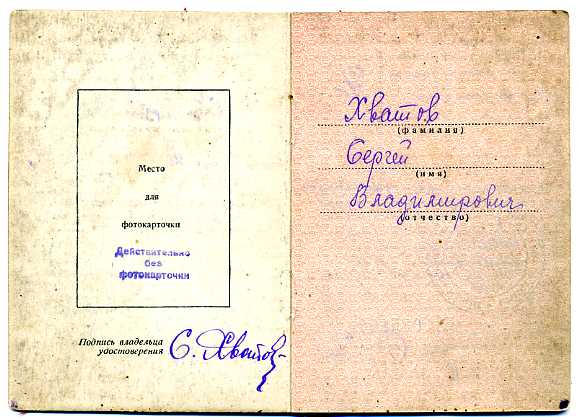 Место
для
фотокарточки
Действительно
без
фотокарточки
Подпись владельца
удостоверения
С. Хватов
Хватов
(фамилия)
Сергей
(имя)
Владимирович
(отчество)